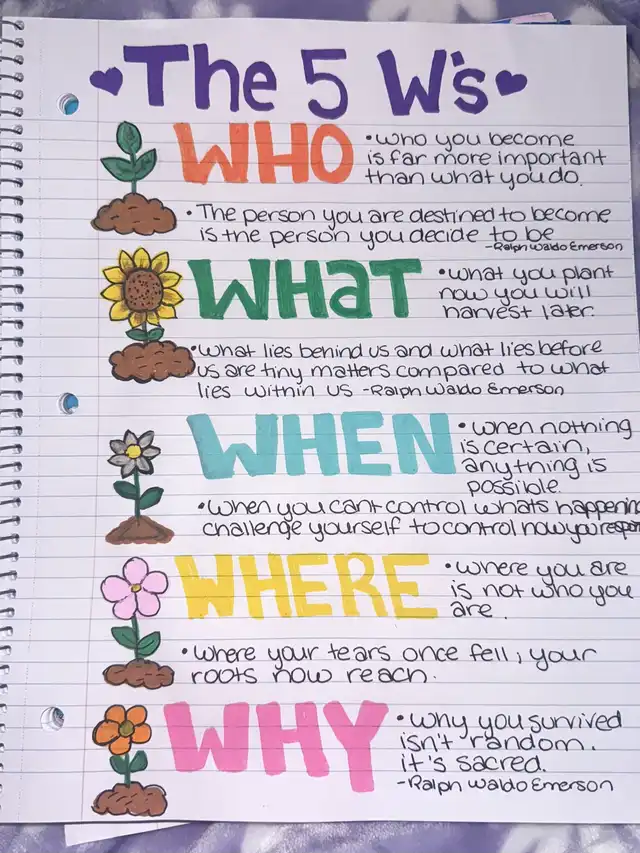 The 5 W's
WHO
•who you become
is far more important
than what you do.
• The person you are destined to become
is the person you decide to be
-Ralph Waldo Emerson
WHaT
•what you plant
now you will
harvest later.
•what lies behind us and what lies before
us are tiny matters compared to what
lies within us -Ralph Waldo Emerson
WHEN
•when nothing
is certain,
anything is
possible.
•when you cant control whats happening
challenge yourself to control how you
WHERE
•where you are
is not who you
are.
•where your tears once fell, your
roots now reach.
WHY
•why you survived
isn't random.
it's sacred.
-Ralph Waldo Emerson